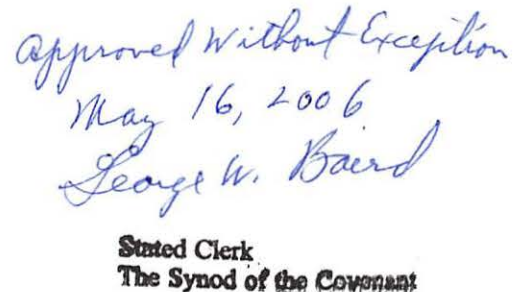 approved Without Exception
May 16, 2006
George W. Baird
Stated Clerk
The Synod of the Covenant